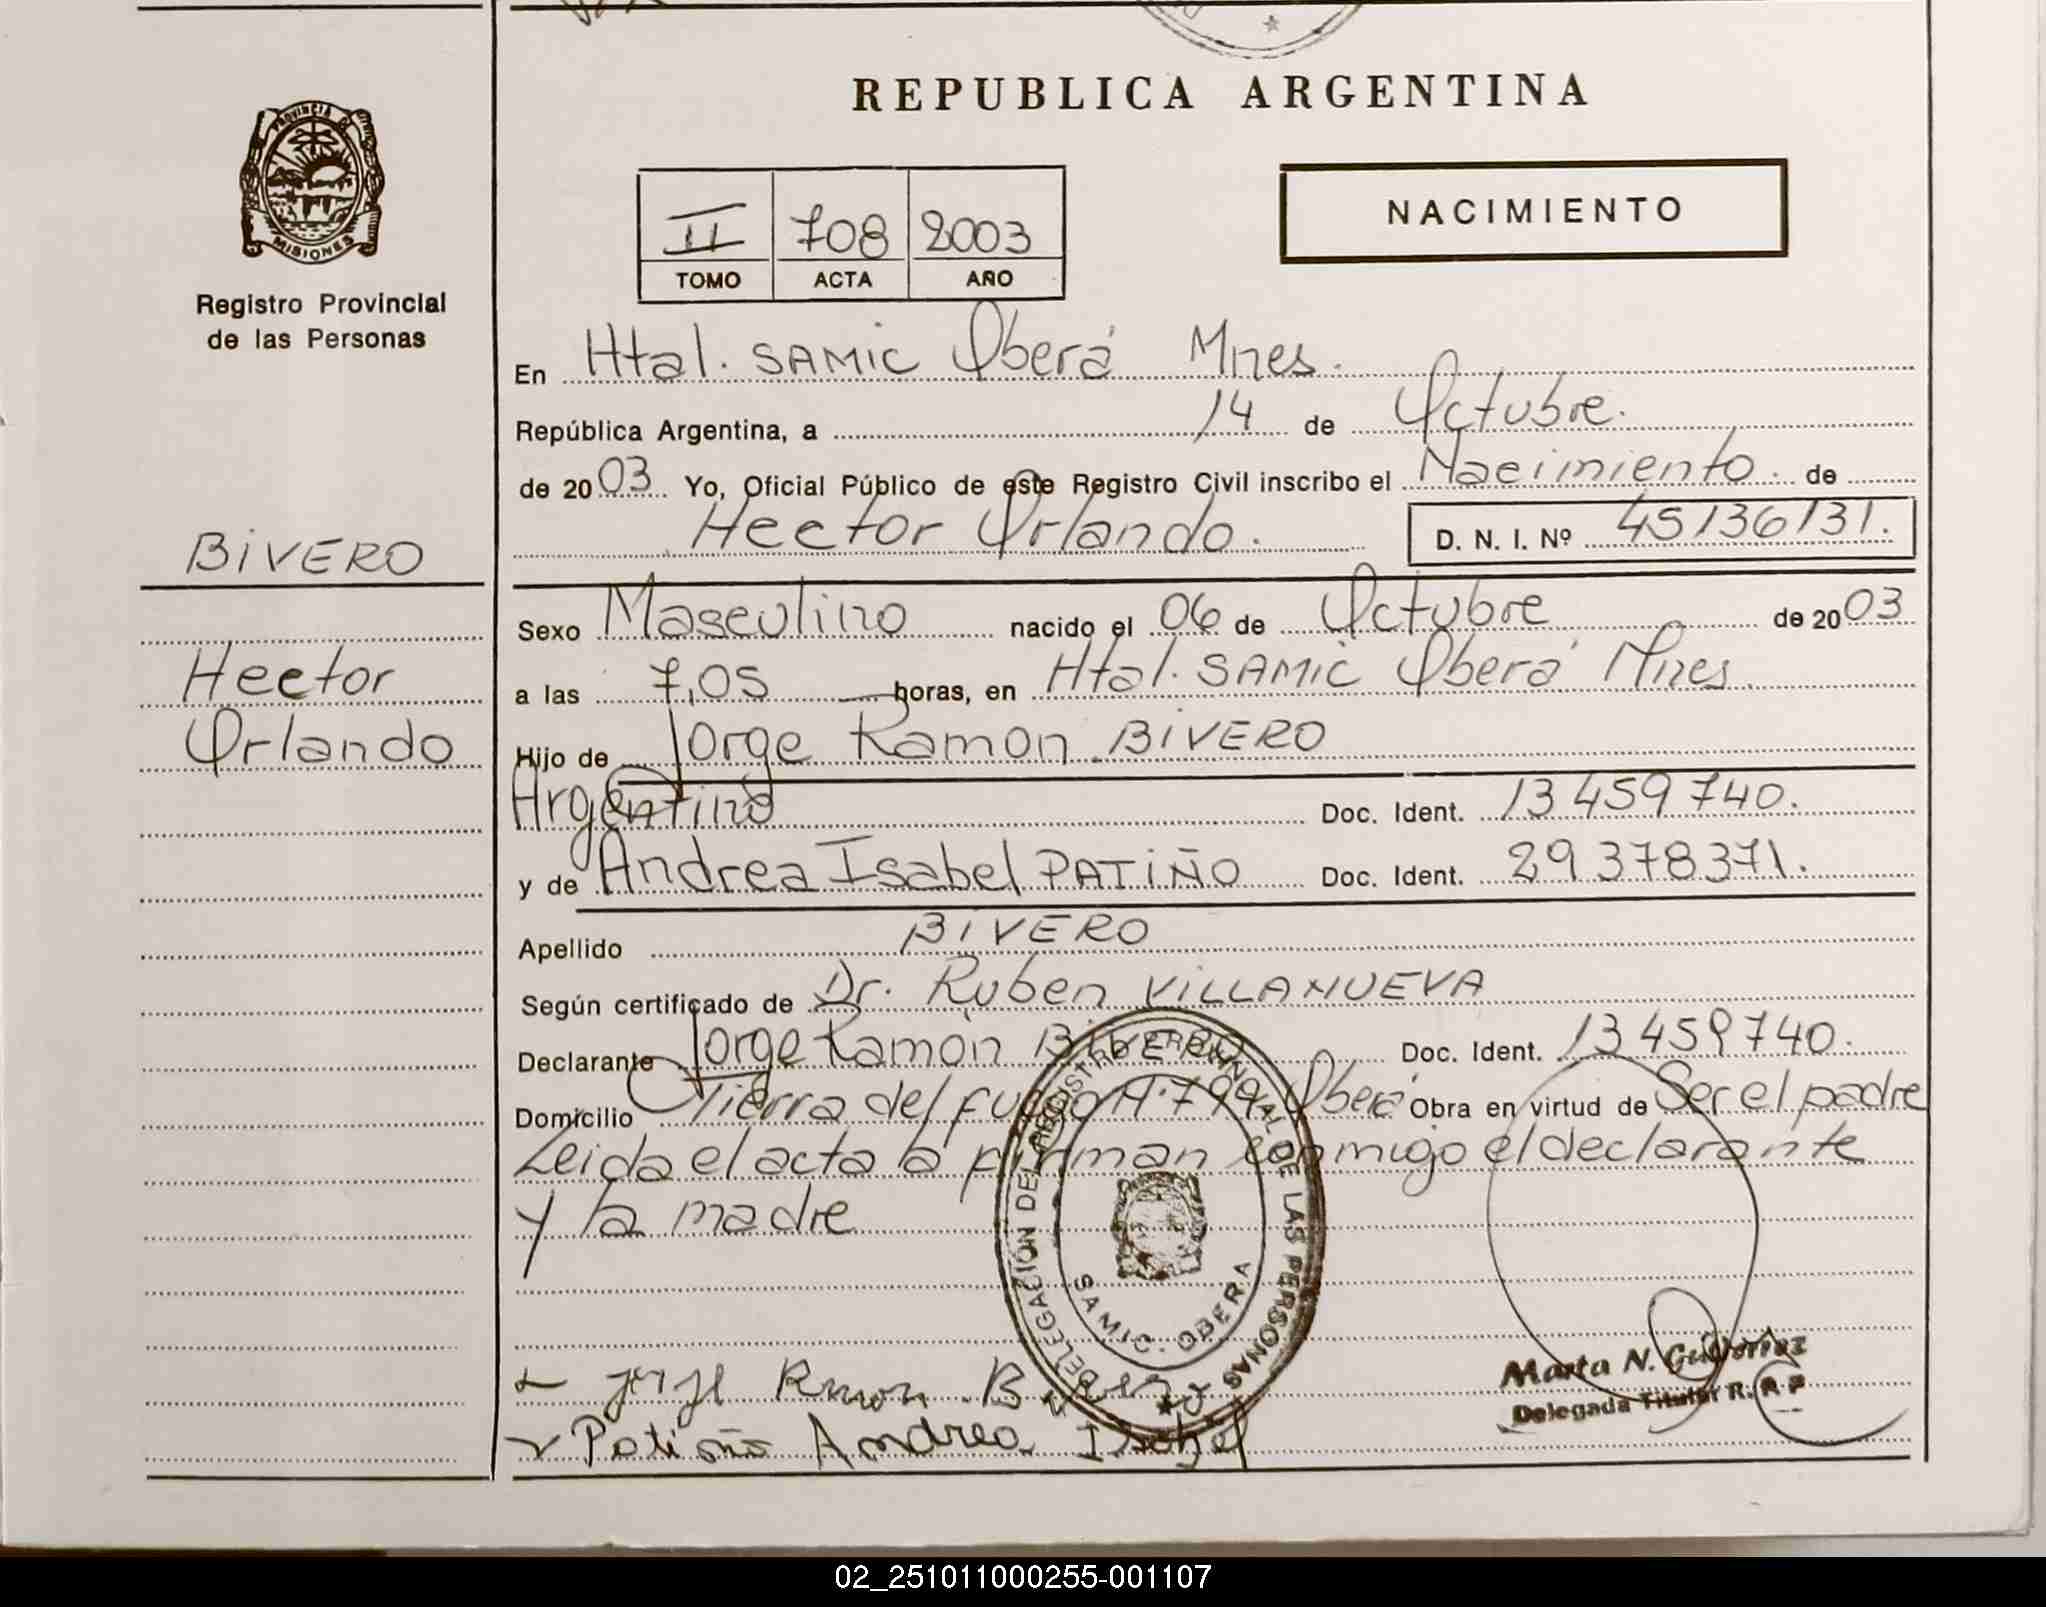 REPUBLICA ARGENTINA
PROVINCIA DE
MISIONES
Registro Provincial
de las Personas
II 708 2003
TOMO ACTA AÑO
NACIMIENTO
En Htal. SAMIC Oberá Mnes.
República Argentina, a 14 de Octubre.
de 2003 Yo, Oficial Público de este Registro Civil inscribo el Nacimiento. de
Hector Orlando. D. N. I. Nº 45136131.
BIVERO
Hector
Orlando
Sexo Masculino nacido el 06 de Octubre de 2003
a las 7,05 horas, en Htal. SAMIC Oberá Mnes
Hijo de Jorge Ramon BIVERO
Argentino Doc. Ident. 13459740.
y de Andrea Isabel PATIÑO Doc. Ident. 29378371.
Apellido BIVERO
Según certificado de Dr. Ruben VILLANUEVA
Declarante Jorge Ramon BIVERO Doc. Ident. 13459740.
Domicilio Tierra del fuego Nº 799 Oberá Obra en virtud de Ser el padre
Leida el acta la firman conmigo el declarante
y la madre
DELEGACIÓN DEL REGISTRO PROVINCIAL DE LAS PERSONAS
SAMIC. OBERA
Jorge Ramon Bivero
Patiño Andrea Isabel
Marta N. Gutierrez
Delegada Titular R. P. P
02_251011000255-001107